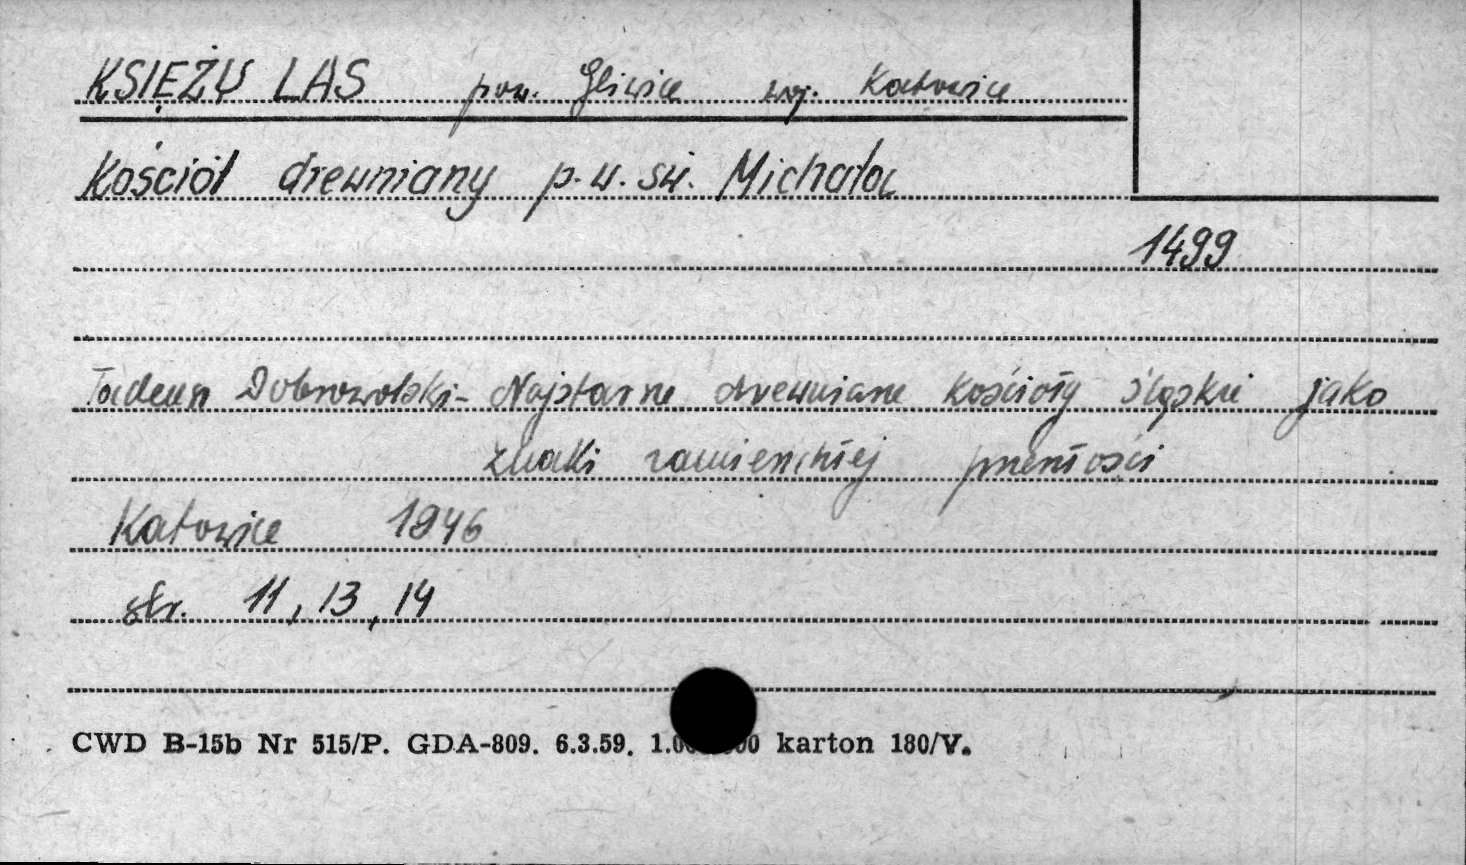 KSIĘŻY LAS pow. Gliwice woj. Katowice
Kościół drewniany p.w. św. Michała
1499
Tadeusz Dobrowolski - Najstarsze drewniane kościoły śląskie jako
znaki zamierzchłej przeszłości
Katowice 1946
str. 11, 13, 14
CWD B-15b Nr 515/P. GDA-809. 6.3.59. karton 180/V.